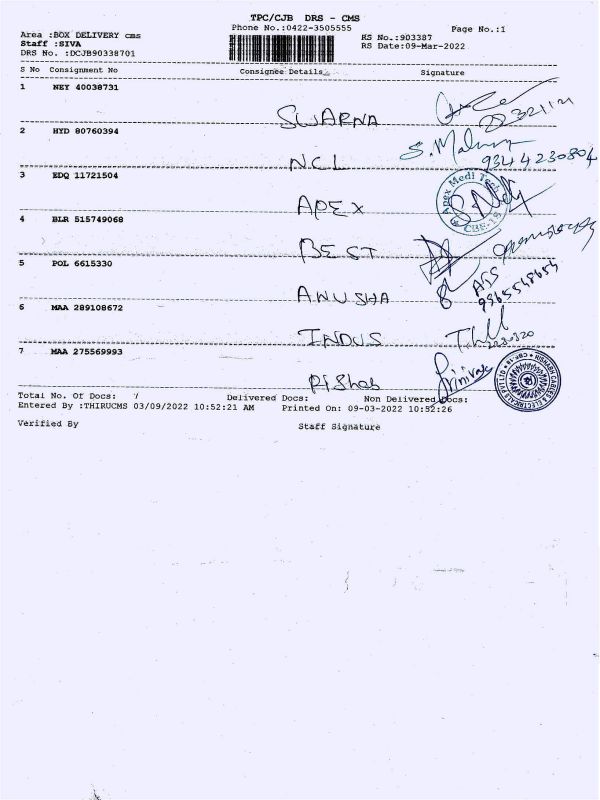 TPC/CJB DRS - CMS
Phone No.:0422-3505555
Page No.:1
Area :BOX DELIVERY CMS
RS No.:903387
Staff :SIVA
RS Date:09-Mar-2022
DRS No. :DCJB90338701
S No Consignment No Consignee Details Signature
1 NEY 40038731
SWARNA
2 HYD 80760394
NCL
9344230804
3 EDQ 11721504
APEX
Apex Medi Tech
CBE-18
4 BLR 515749068
BEST
5 POL 6615330
ANUSHA
9965548654
6 MAA 289108672
INDUS
7 MAA 275569993
RIShab
Total No. Of Docs: 7 Delivered Docs: Non Delivered Docs:
Entered By :THIRUCMS 03/09/2022 10:52:21 AM Printed On: 09-03-2022 10:52:26
Verified By Staff Signature